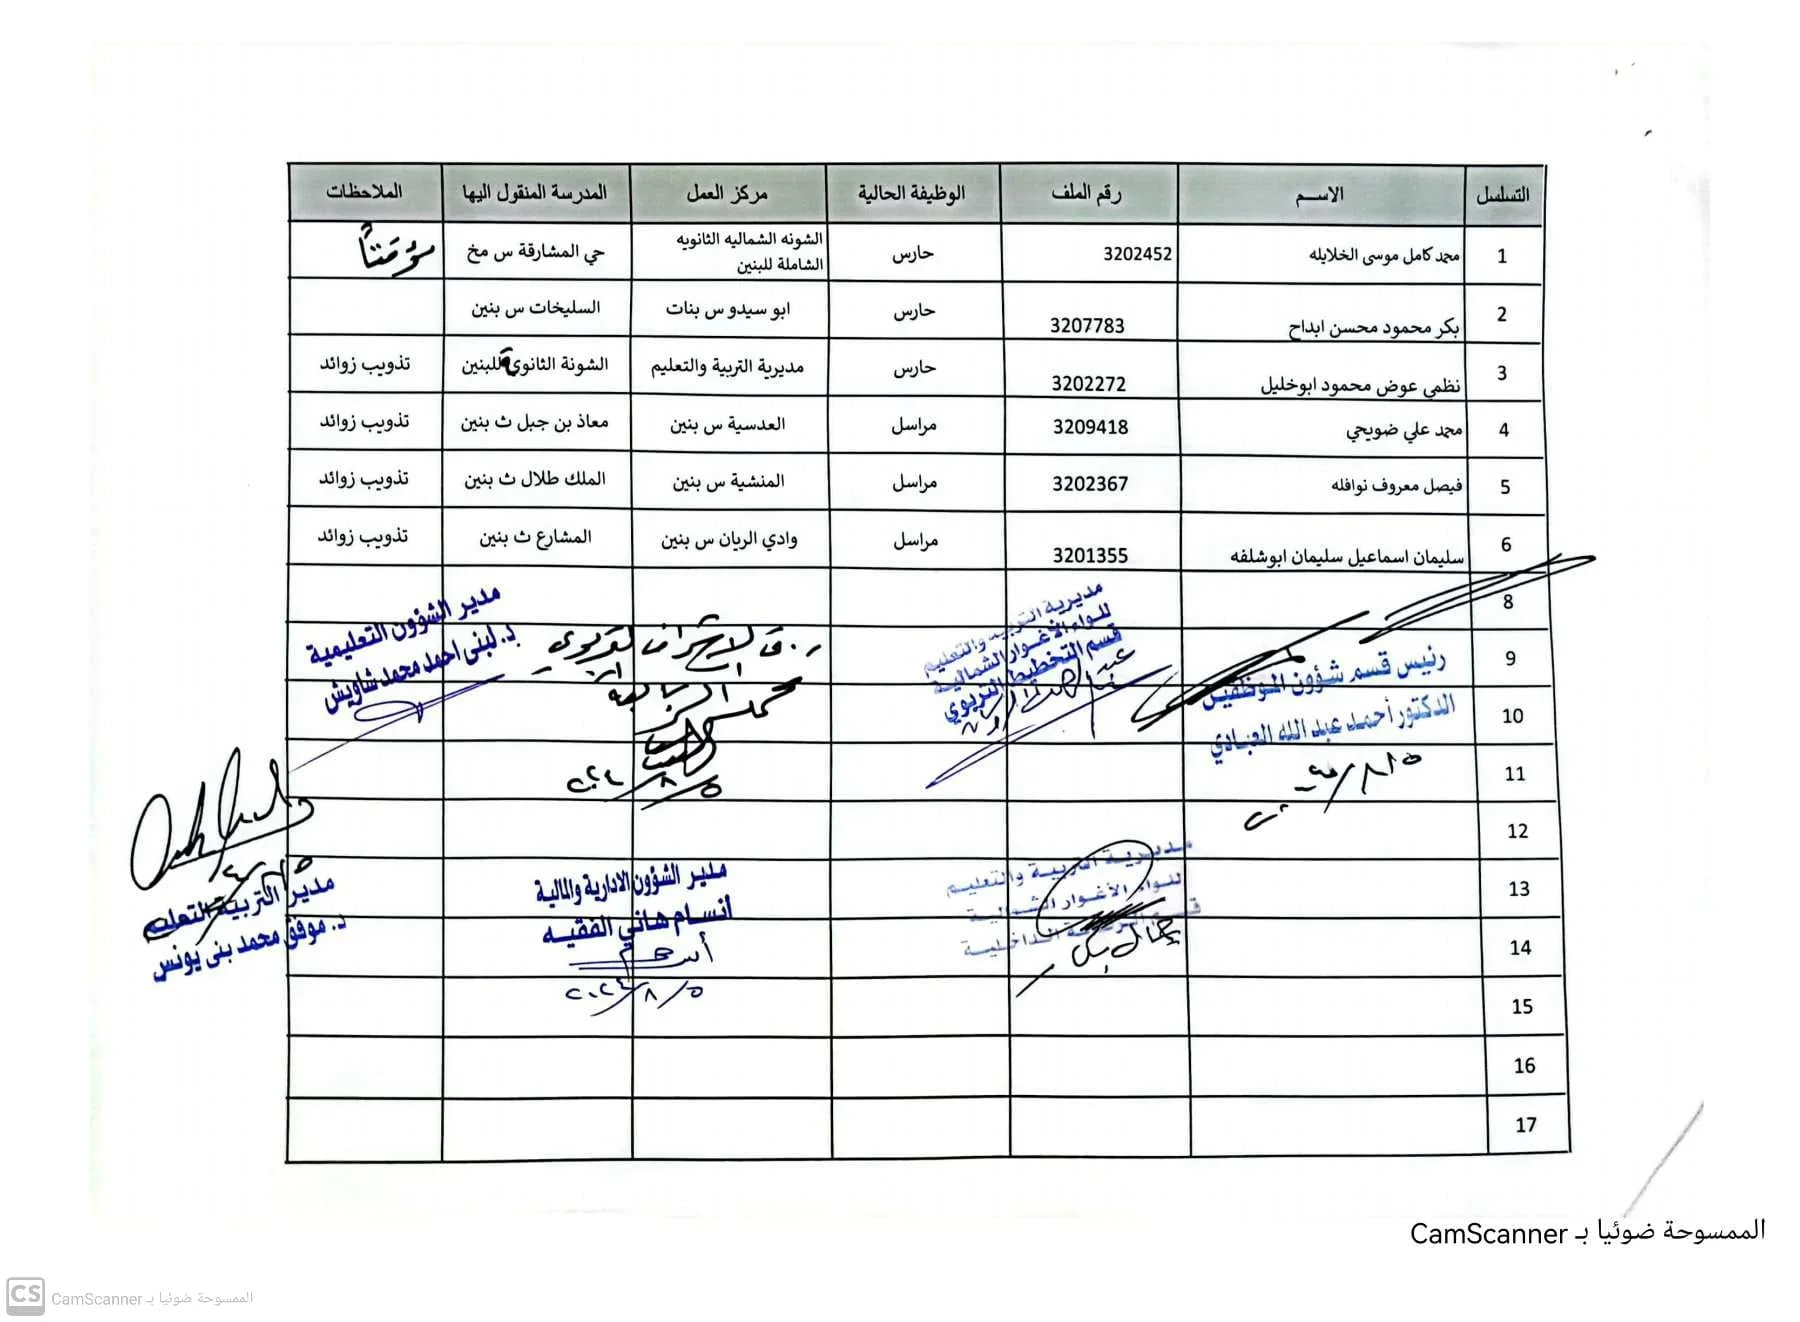 التسلسل الاســـم رقم الملف الوظيفة الحالية مركز العمل المدرسة المنقول اليها الملاحظات
1 محمد كامل موسى الخلايله 3202452 حارس الشونه الشماليه الثانويه الشاملة للبنين حي المشارقة س مخ مؤقتاً
2 بكر محمود محسن ابداح 3207783 حارس ابو سيدو س بنات السليخات س بنين
3 نظمي عوض محمود ابوخليل 3202272 حارس مديرية التربية والتعليم الشونة الثانوية للبنين تذويب زوائد
4 محمد علي ضويحي 3209418 مراسل العدسية س بنين معاذ بن جبل ث بنين تذويب زوائد
5 فيصل معروف نوافله 3202367 مراسل المنشية س بنين الملك طلال ث بنين تذويب زوائد
6 سليمان اسماعيل سليمان ابوشلفه 3201355 مراسل وادي الريان س بنين المشارع ث بنين تذويب زوائد
8
9
10
11
12
13
14
15
16
17
رئيس قسم شؤون الموظفين
الدكتور أحمد عبد الله العبادي
مديرية التربية والتعليم
للواء الأغوار الشمالية
قسم التخطيط التربوي
٢٠٢٤/٨/٥
مدير الشؤون التعليمية
د. لبنى احمد محمد شاويش
مديرية التربية والتعليم
للواء الأغوار الشمالية
قسم الرقابة الداخلية
مدير الشؤون الادارية والمالية
أنسام هاني الفقيه
٢٠٢٤/٨/٥
مدير التربية والتعليم
د. موفق محمد بني يونس
الممسوحة ضوئيا بـ CamScanner
CS الممسوحة ضوئيا بـ CamScanner